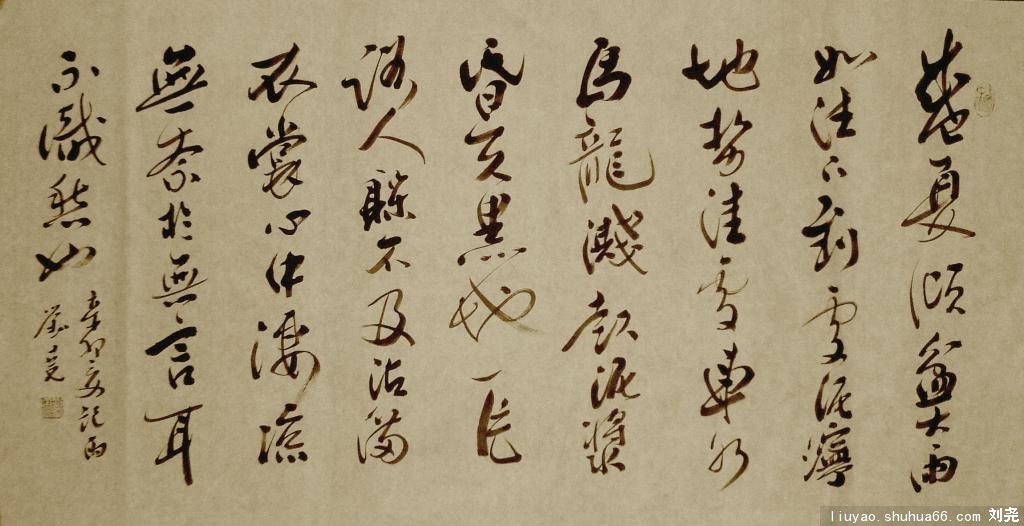 盛夏傾盆大雨
如注下到處泥濘
地勢洼處車如
烏龍濺起泥漿
昏天黑地一片
路人躲不及沾滿
衣裳心中淒涼
無奈於無言耳
不識愁如
辛卯年夏記雨
劉堯
liuyao.shuhua66.com 刘尧